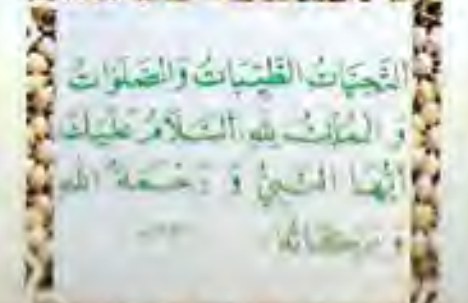 التَّحِيَّاتُ الطَّيِّبَاتُ وَالصَّلَوَاتُ
وَ الْمُلْكُ لله السَّلَامُ عَلَيْكَ
أَيُّهَا النَّبِيُّ وَ رَحْمَةُ الله
وَ بَرَكَاتُهُ